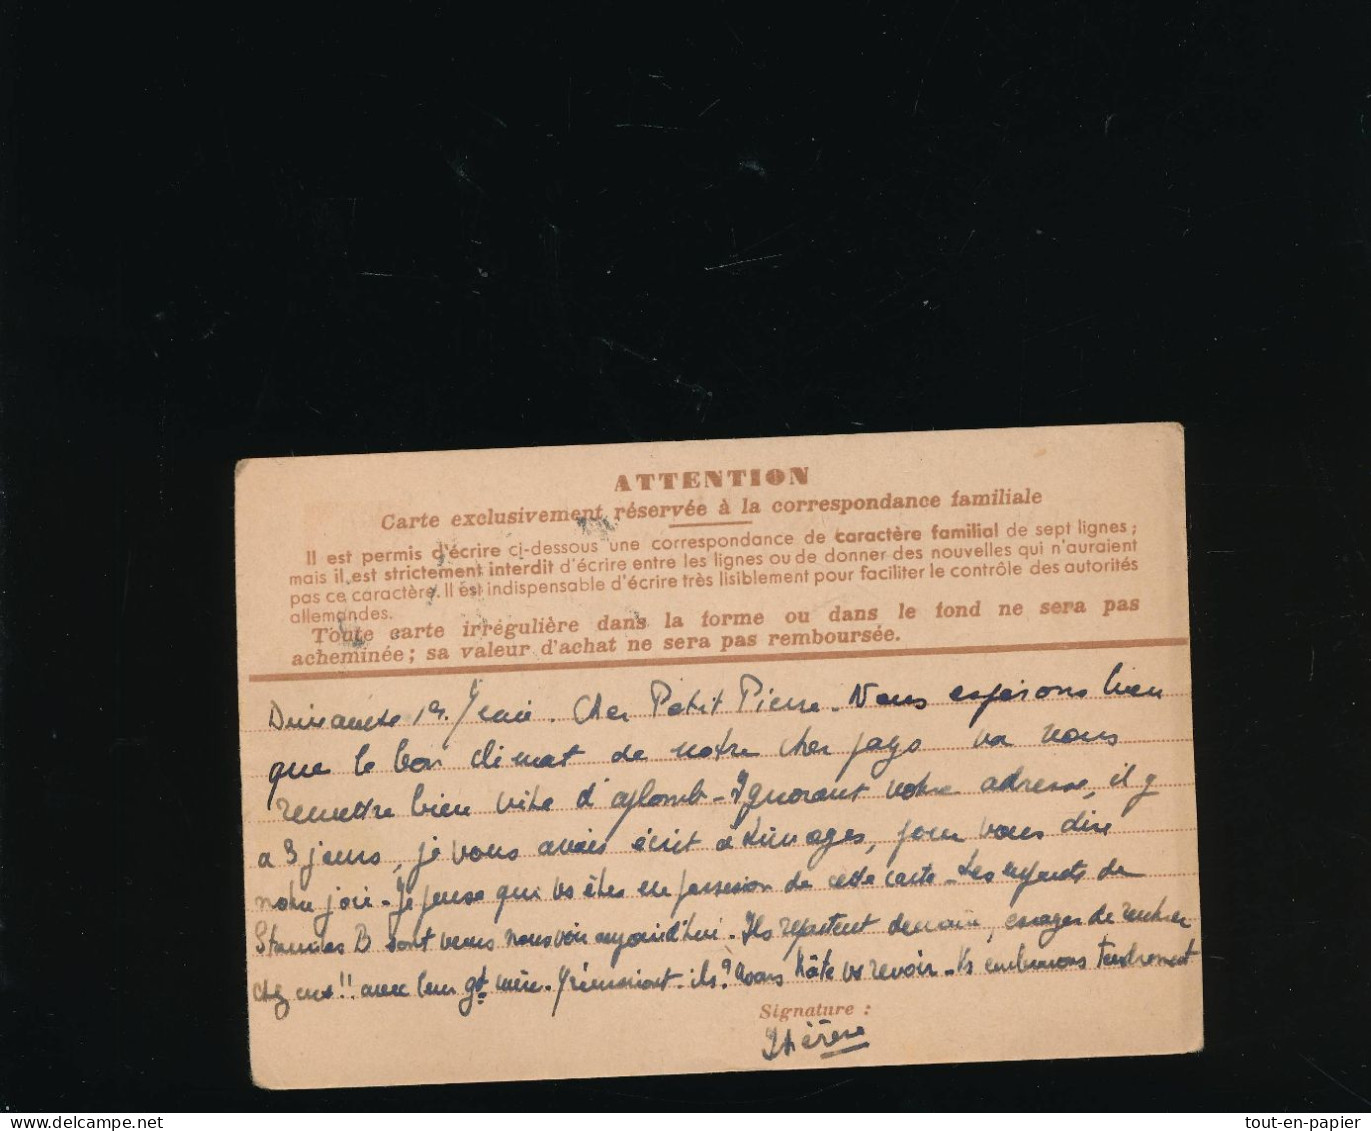 ATTENTION
Carte exclusivement réservée à la correspondance familiale
Il est permis d'écrire ci-dessous une correspondance de caractère familial de sept lignes ;
mais il est strictement interdit d'écrire entre les lignes ou de donner des nouvelles qui n'auraient
pas ce caractère. Il est indispensable d'écrire très lisiblement pour faciliter le contrôle des autorités
allemandes.
Toute carte irrégulière dans la forme ou dans le fond ne sera pas
acheminée ; sa valeur d'achat ne sera pas remboursée.
Dimanche 19. Cher Petit Pierre. Nous espérons bien
que le bon climat de notre cher pays va vous
remettre bien vite d'aplomb. Ignorant votre adresse, il y
a 3 jours, je vous avais écrit à Limoges, pour vous dire
notre joie. Je pense que vs êtes en possession de cette carte. Les enfants de
B. sont venus nous voir aujourd'hui. Ils repartent demain, essayer de rentrer
chez eux !! avec leur gd mère. ils ? Avons hâte vs revoir. Vs embrassons tendrement
Signature :
Thérèse
tout-en-papier
www.delcampe.net